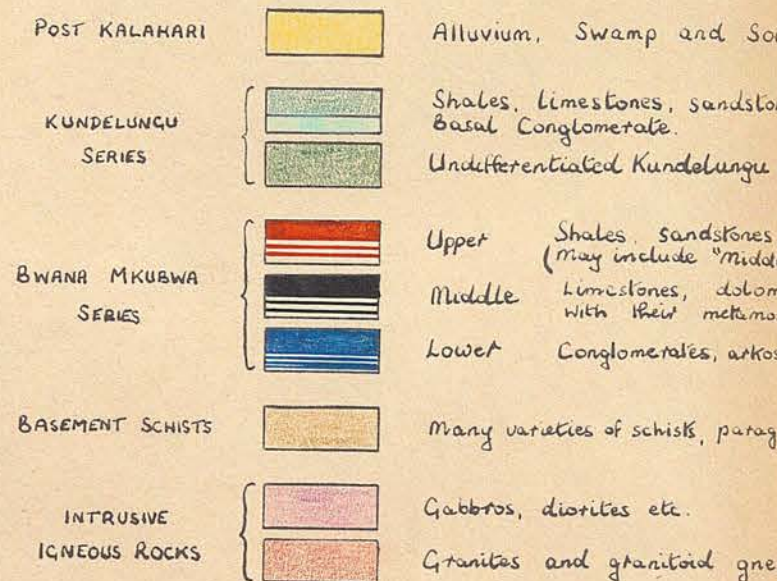 POST KALAHARI
Alluvium, Swamp and
KUNDELUNGU
SERIES
Shales, Limestones,
Basal Conglomerate.
Undifferentiated Kundelungu
BWANA MKUBWA
SERIES
Upper Shales, Sandstones
(may include
Middle Limestones,
with their
Lower Conglomerates,
BASEMENT SCHISTS
Many varieties of schists,
INTRUSIVE
IGNEOUS ROCKS
Gabbros, diorites etc.
Granites and granitoid